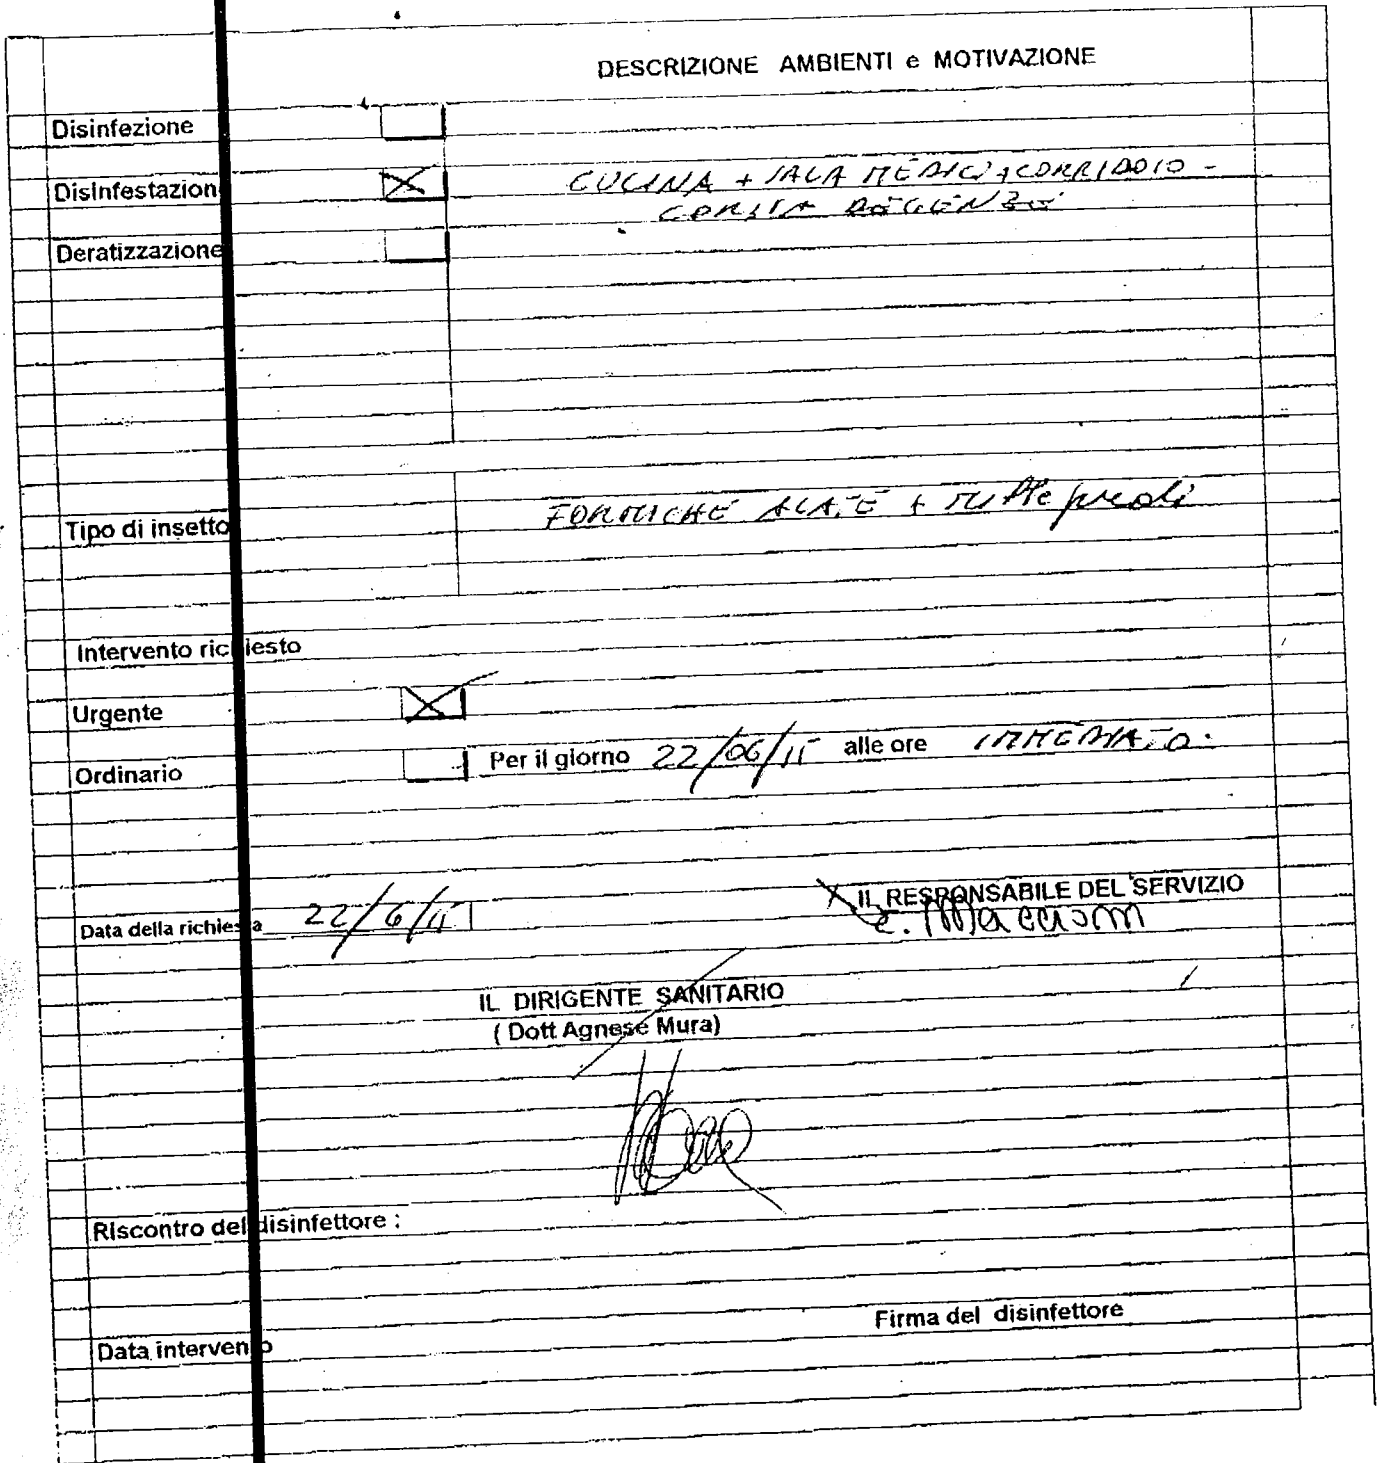 DESCRIZIONE AMBIENTI e MOTIVAZIONE
Disinfezione
Disinfestazion CUCINA + SALA MEDICI + CORRIDOIO -
CORSIA DEGENZE
Deratizzazione
Tipo di insetto FORMICHE ALATE + millepiedi
Intervento richiesto
Urgente
Ordinario Per il giorno 22/06/15 alle ore IMMEDIATO.
IL RESPONSABILE DEL SERVIZIO
Data della richiesta 22/6/15
IL DIRIGENTE SANITARIO
( Dott Agnese Mura)
Riscontro del disinfettore :
Firma del disinfettore
Data intervento